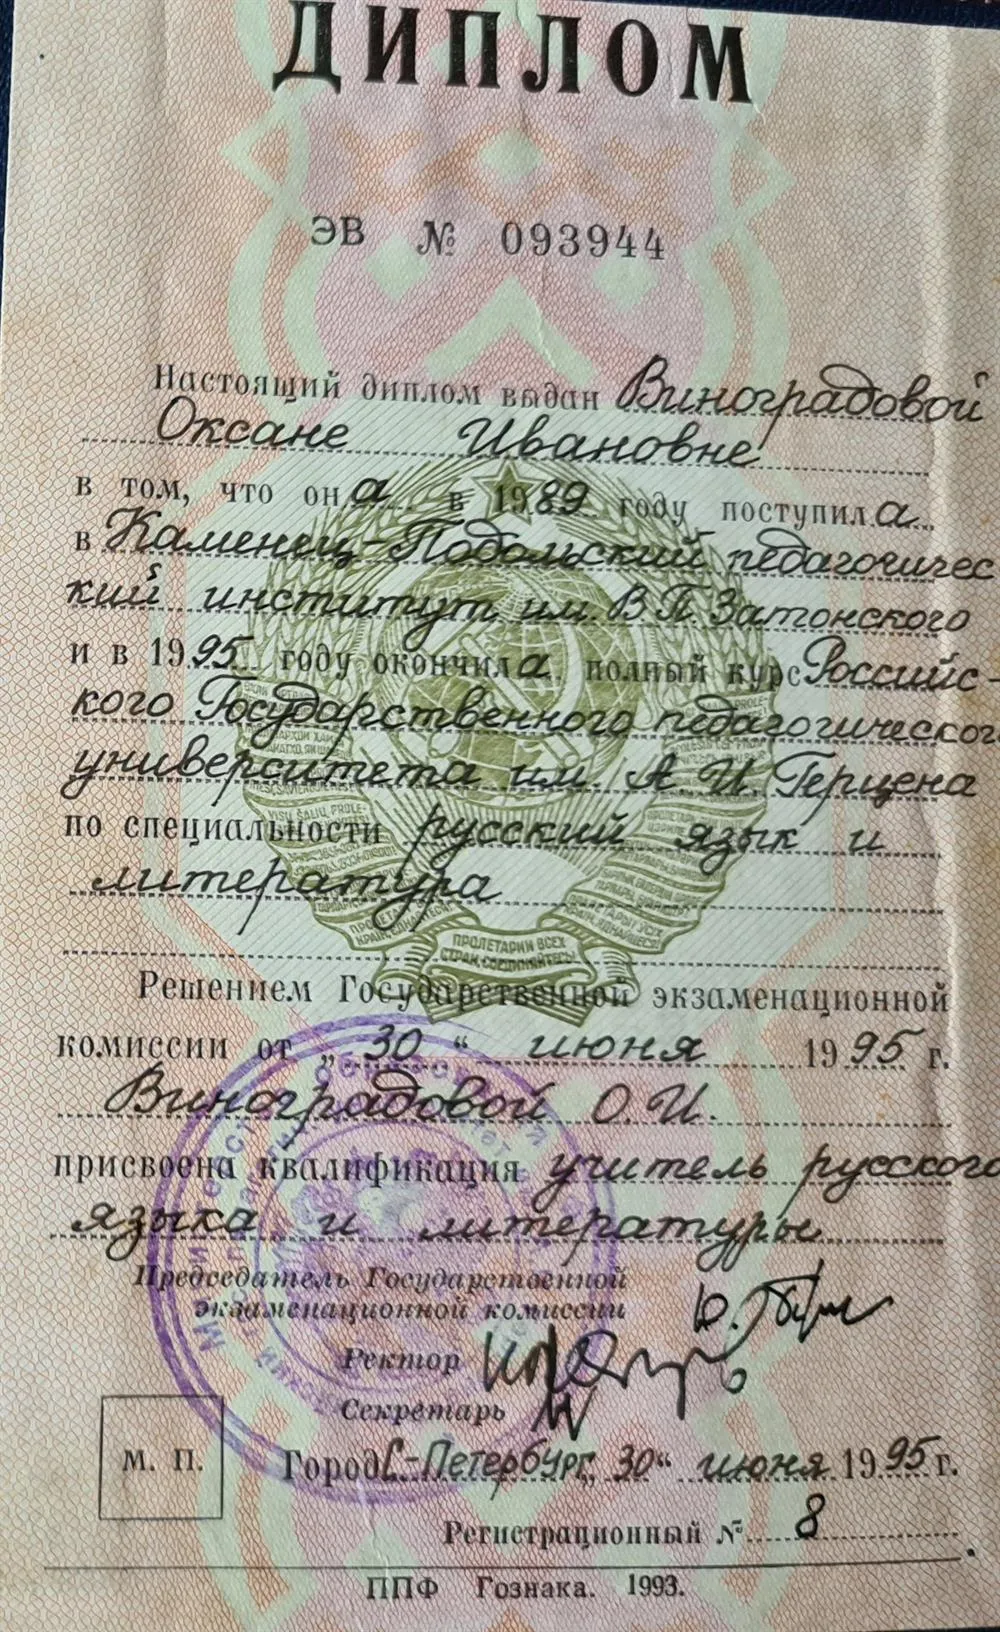 ДИПЛОМ
ЭВ № 093944
Настоящий диплом выдан Виноградовой
Оксане Ивановне
в том, что она в 1989 году поступила
в Каменец-Подольский педагогичес
кий институт им. В.П. Затонского
и в 1995 году окончила полный курс Российс-
кого Государственного педагогического
университета им. А.И. Герцена
по специальности русский язык и
литература
ПРОЛЕТАРИИ ВСЕХ
СТРАН, СОЕДИНЯЙТЕСЬ!
Решением Государственной экзаменационной
комиссии от „30“ июня 1995 г.
Виноградовой О.И.
присвоена квалификация учитель русского
языка и литературы
Председатель Государственной
экзаменационной комиссии
Ректор
Секретарь
М. П.
Город С-Петербург, „30“ июня 1995 г.
Регистрационный № 8
ППФ Гознака. 1993.